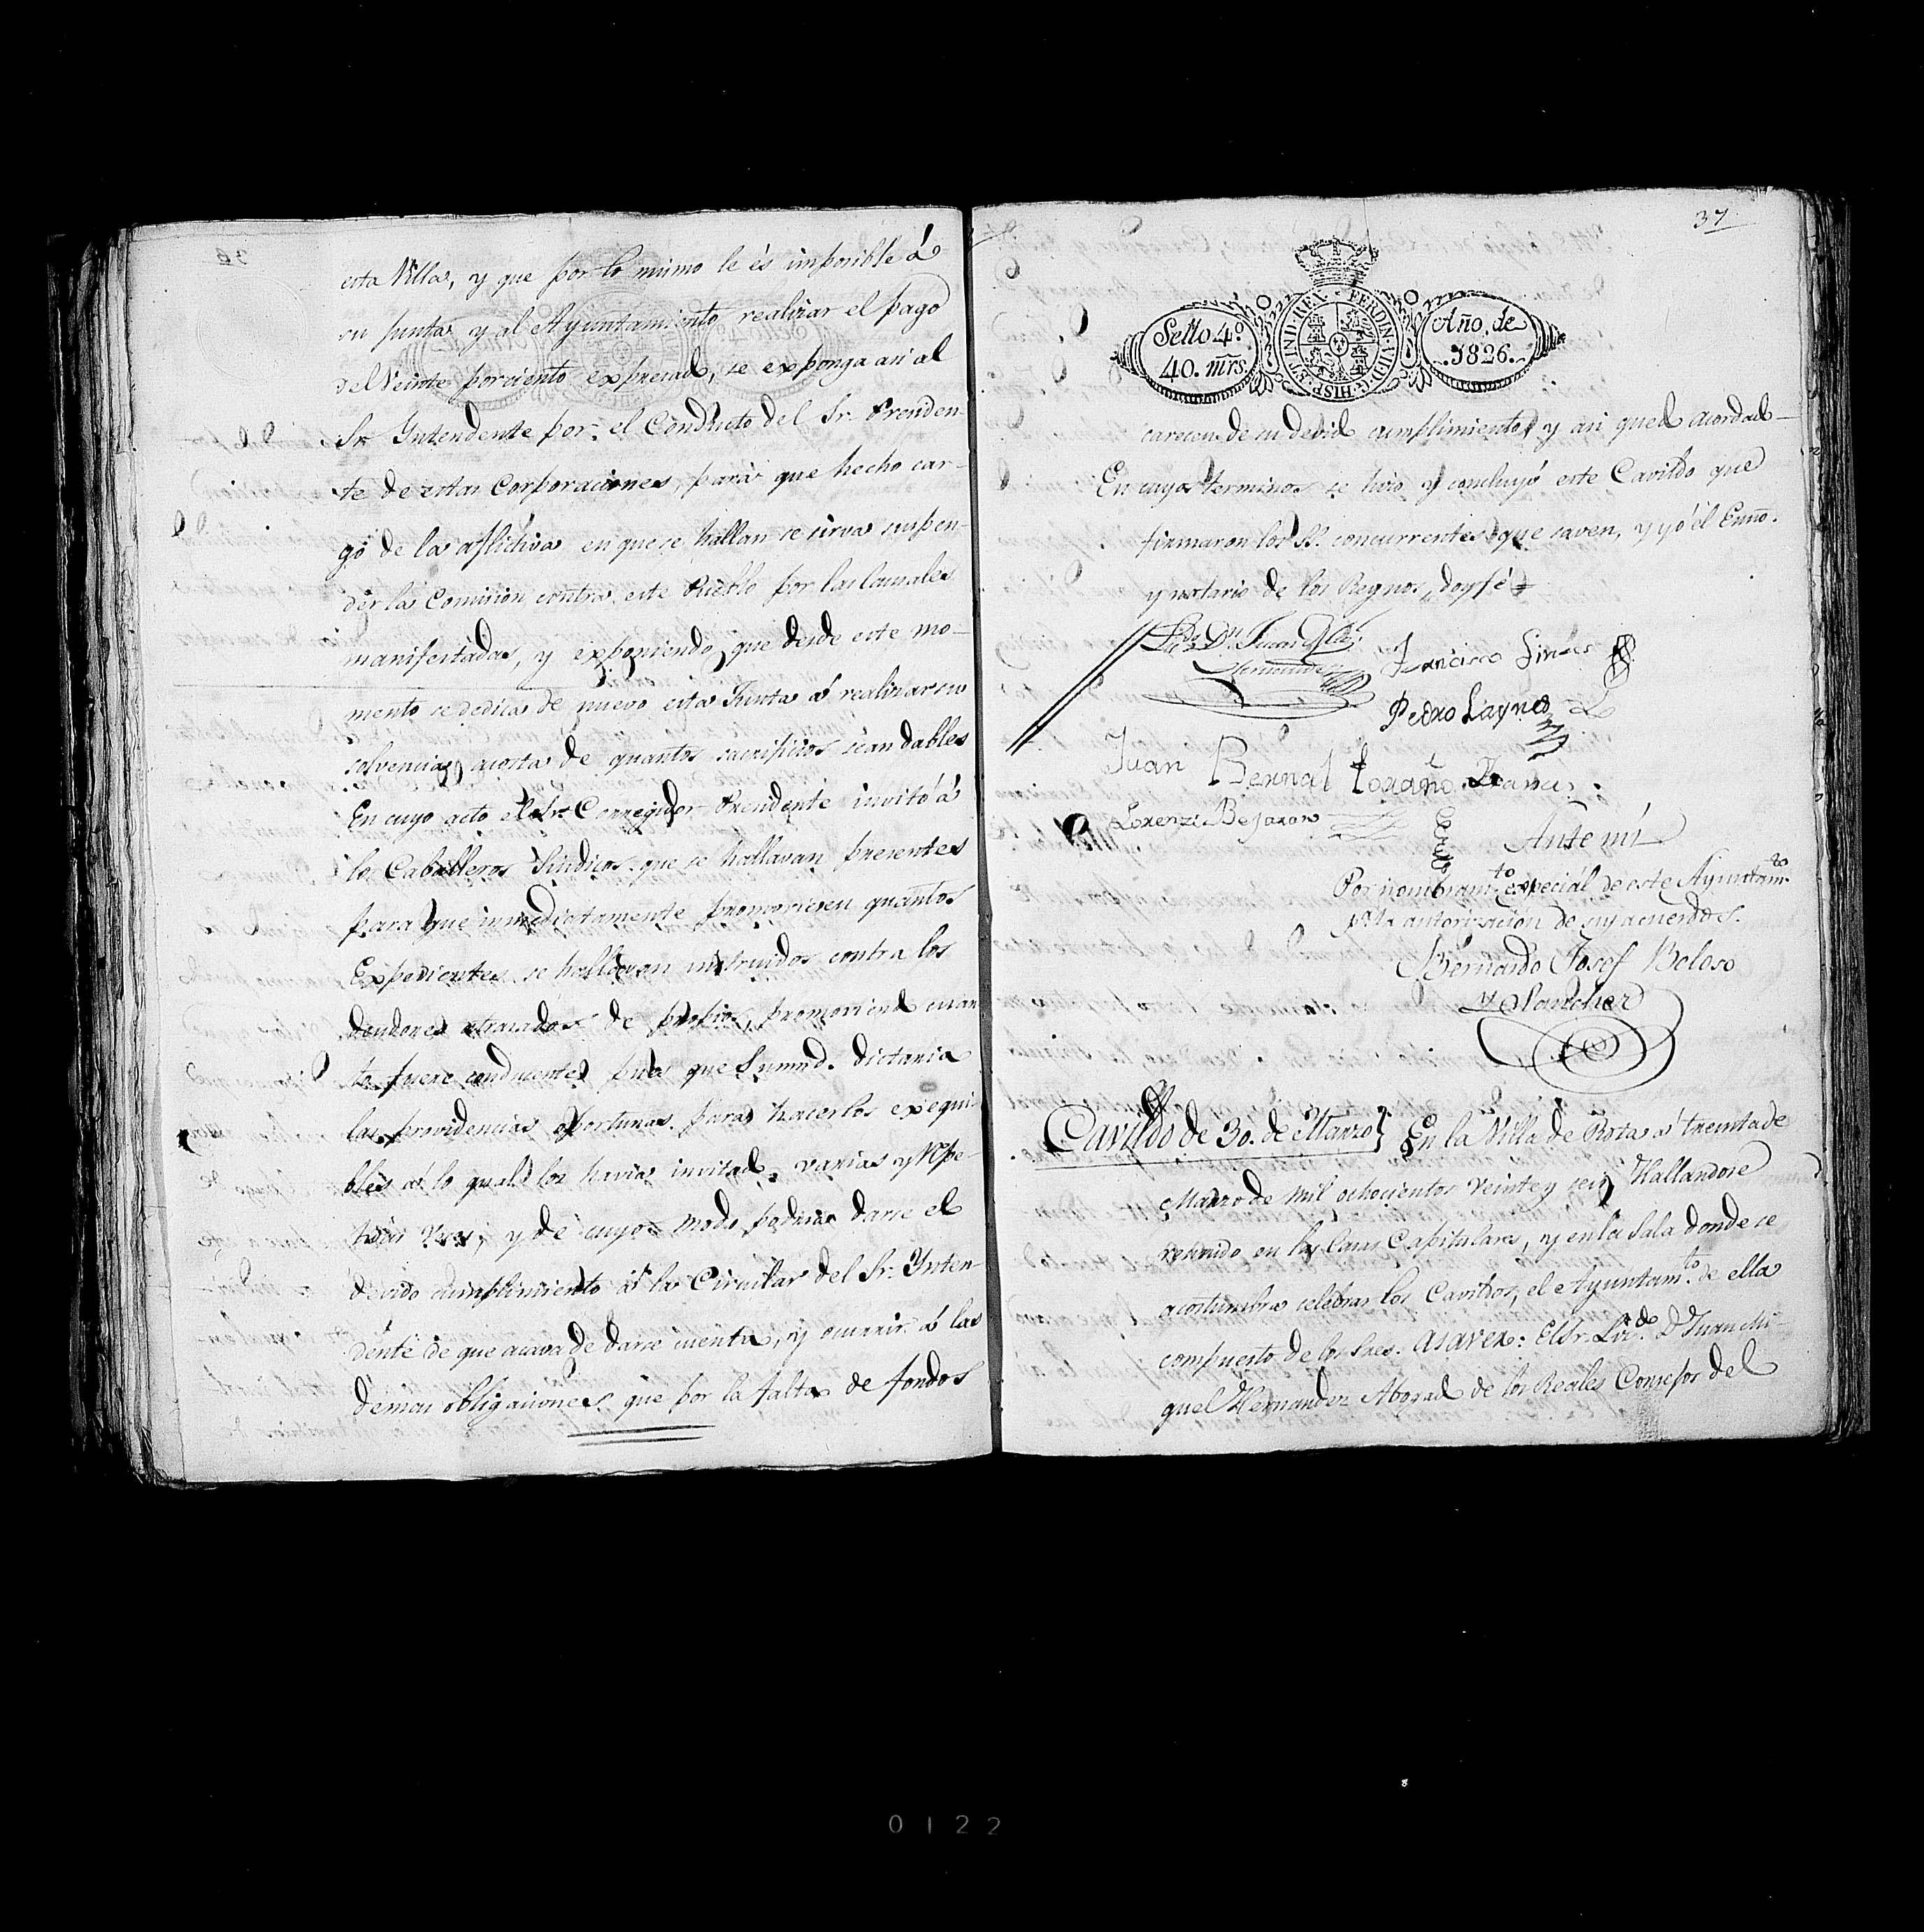 esta Villa, y que por lo mismo le és imposible á
su junta y al Ayuntamiento realizar el pago
del Veinte por ciento expresado, se exponga asi al
Sr. Yntendente por el Conducto del Sr. Presiden-
te de estas Corporaciones, para que hecho car-
go de la aflictiva en que se hallan se sirva suspen-
der la Comision contra este Pueblo por las causales
manifestadas, y exponiendo que desde este mo-
mento se dedica de nuevo esta Junta á realizar su
solvencia, acosta de quantos sacrificios sean dables
En cuyo acto el Sr. Corregidor Presidente invitó á
los Caballeros Sindicos que se hallavan presentes
para que inmediatamente promoviesen quantos
Expedientes se hallavan instruidos contra los
deudores atrasados de propios, promoviendo cuan
to fuere conducente pues que Sumrd. dictaria
las providencias oportunas para hacerlos exequi-
bles a lo qual los havia invitado varias y repe-
tidas veces, y de cuyo modo podria darse el
devido cumplimiento á la Circular del Sr. Ynten-
dente de que acava de darse cuenta, y ocurrir á las
demas obligaciones que por la falta de fondos
37
Sello 4º.
40. mrs.
HISP. ET IND. REX. FERDIN. VII. D. G.
Año. de
1826.
carecen de su devido cumplimiento y asi quedó acordado
En cuyos terminos se hizo y concluyó este Cavildo que
firmaron los SS. concurrentes que saven, y yo él Esnno.
y notario de los Reynos, doy fé
Ldo. Dn. Juan Mel.
Hernandez
Francisco
Pedro Laynes
Juan Bernal
Lorenzo Bejarano
Ante mí
Por nombramto. especial de este Ayuntamto.
pa. la autorizacion de sus acuerdos.
Bernardo Josef Boloso
y Sanchez
Cavildo de 30. de Marzo} En la Villa de Rota á treinta de
Marzo de mil ochocientos veinte y seis Hallandose
reunido en las Casas Capitulares, y en la Sala donde se
acostumbra celebrar los Cavildos, el Ayuntamto. de ella
compuesto de los Sres. Asaver: El Sr. Licdo. Dn. Juan Mi-
guel Hernandez Abogado de los Reales Consejos del
0122